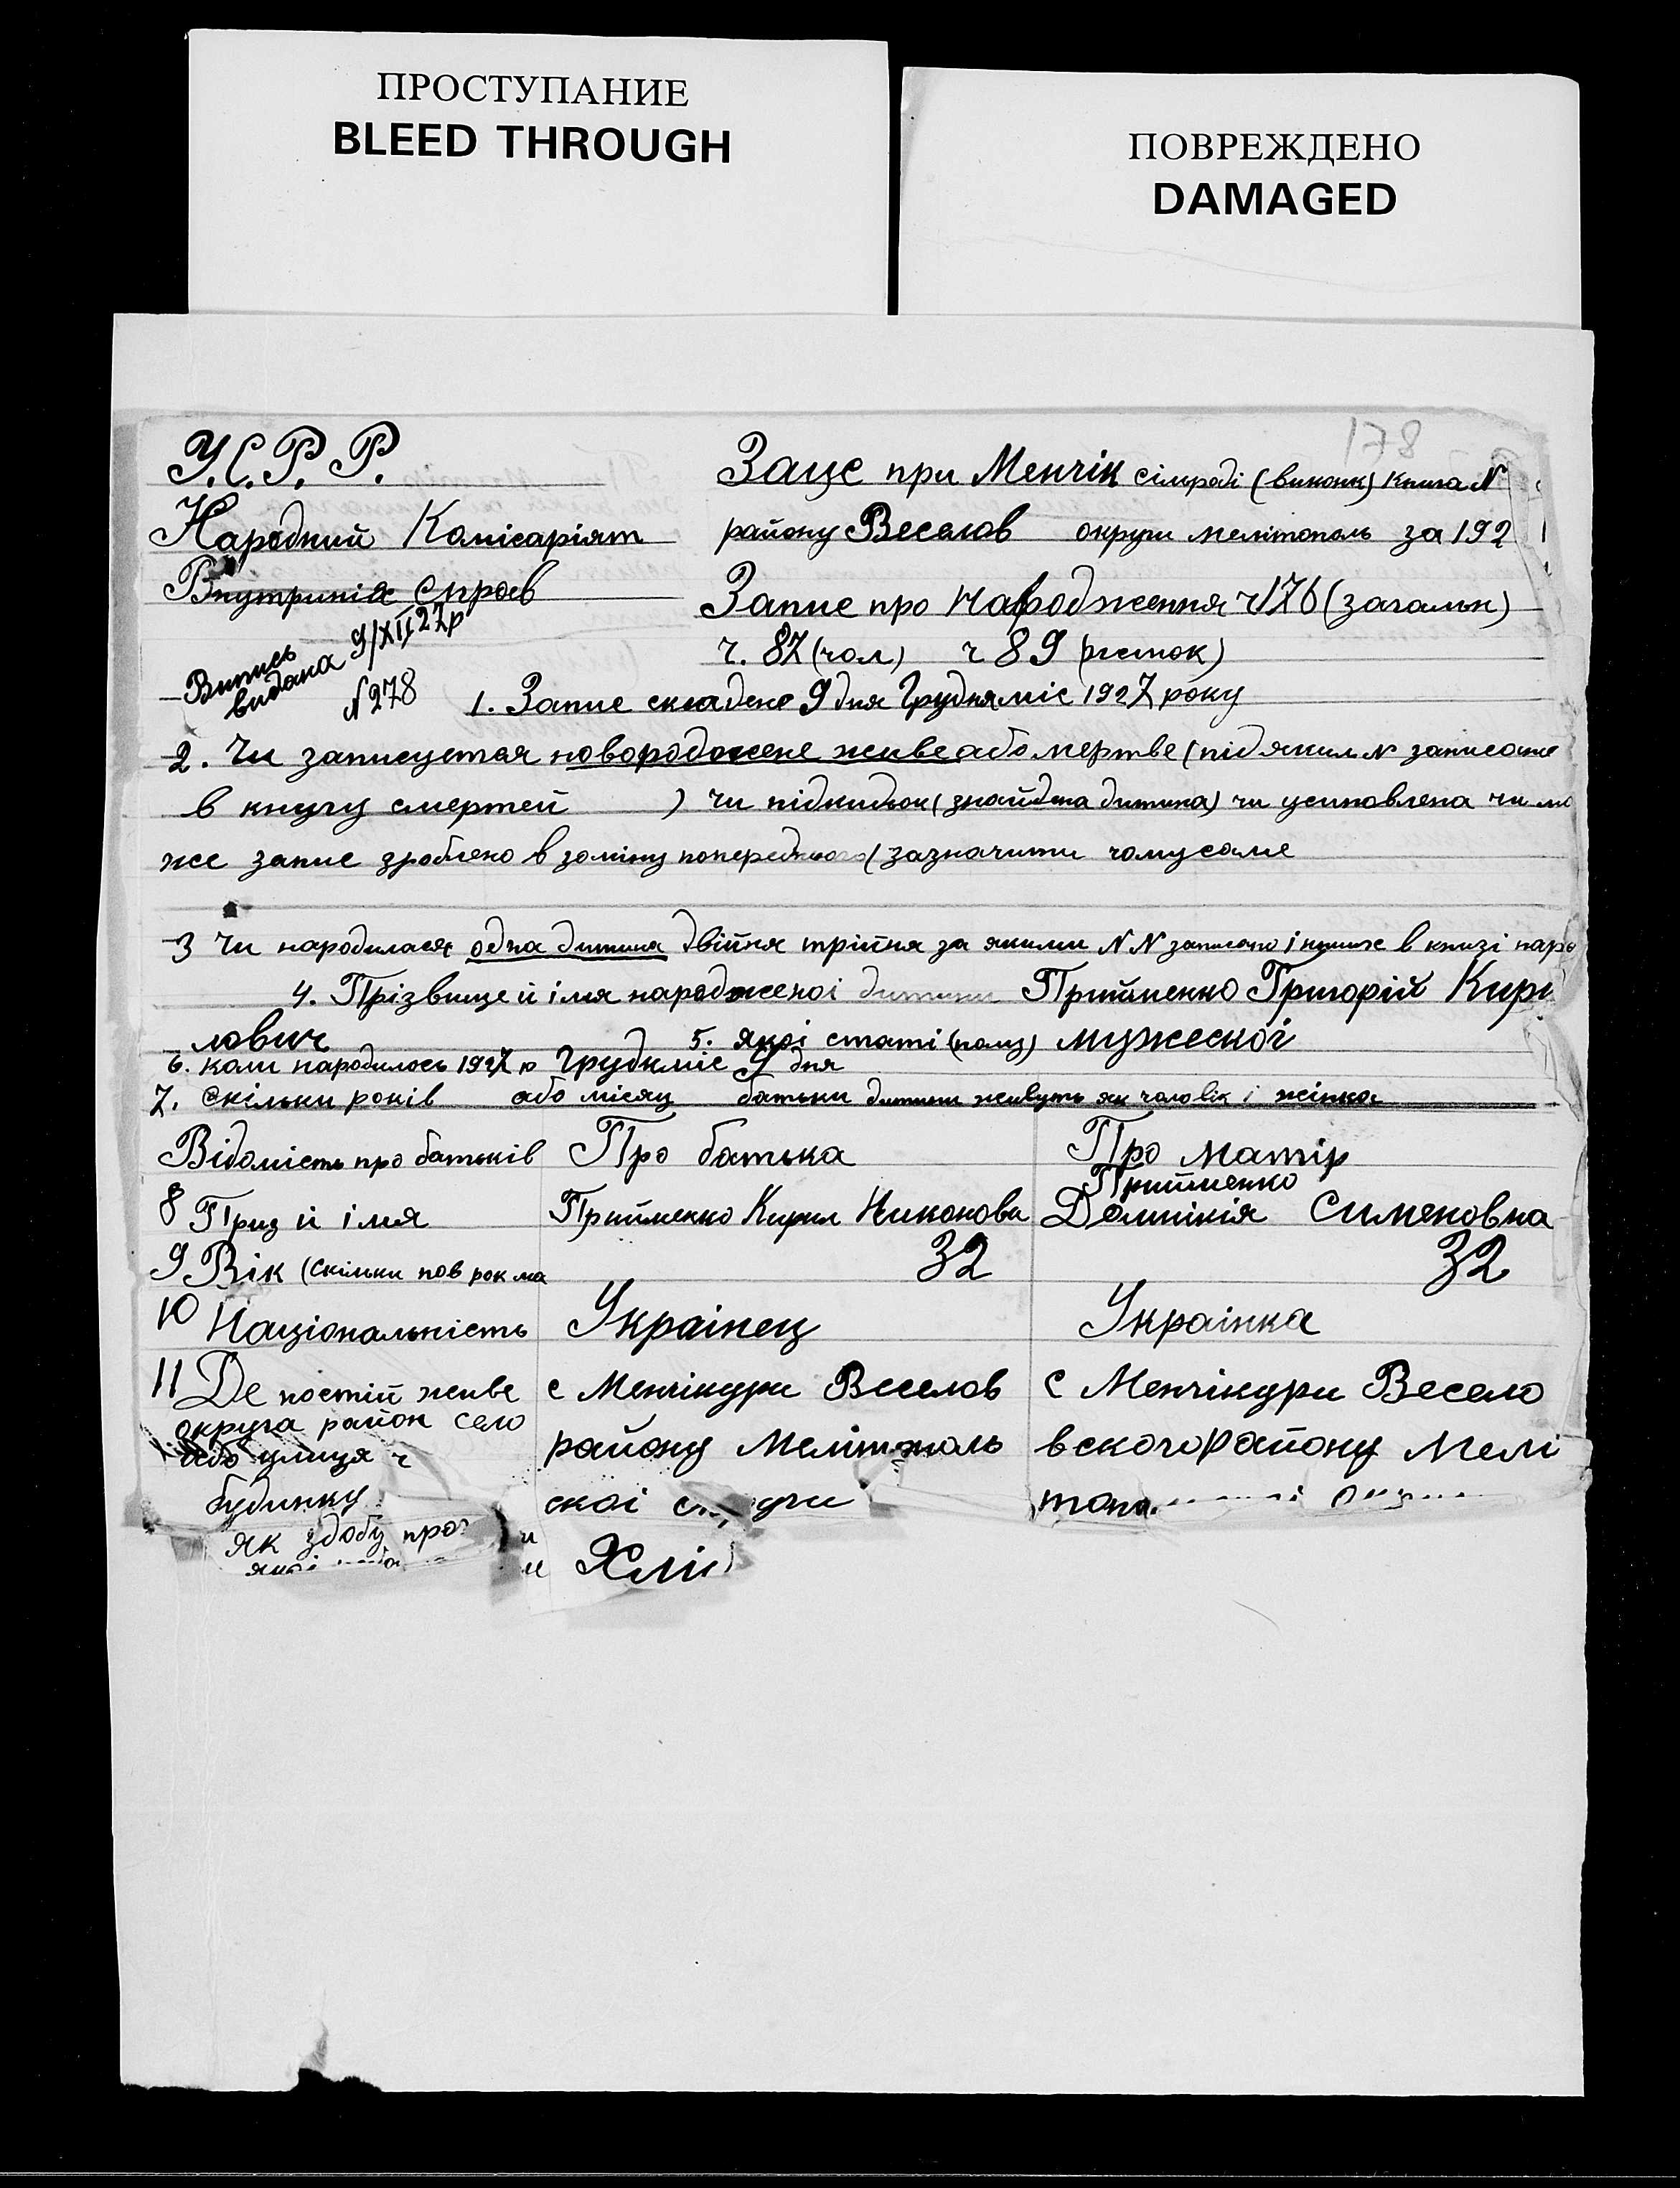 ПРОСТУПАНИЕ
BLEED THROUGH
ПОВРЕЖДЕНО
DAMAGED
178
У.С.Р.Р.
Народний Комісаріят
Внутрішніх справ
Випись видана 9/XII 27р
N278
Загс при Менчік сільраді (виконк) книга N
району Веселов округи мелітополь за 192
Запис про народження ч176 (загальн)
ч. 87 (чол) ч 89 (жінок)
1. Запис складено 9 дня Грудня міс 1927 року
2. Чи записується новородожене живе або мертве (під яким N записане
в книгу смертей ) чи підкидьок (знайдена дитина) чи усиновлена чи
же запис зроблено в заміну попереднього (зазначити чому саме
3 Чи народилася одна дитина двійня трійня за якими NN записано інших в книзі наро
4. Прізвище й імя народженої дитини Прийменко Григорій Кири
лович 5. якої статі (полу) мужеской
6. коли народилось 1927 ю Грудн міс 9 дня
7. скільки років або місяц батьки дитини живуть як чоловік і жінка
Відомість про батьків Про батька Про матір
8 Приз й імя Прийменко Кирил Никонови Прийменко Домнікія Сименовна
9 Вік (скільки пов рок ма 32 32
10 Національність Украінец Украінка
11 Де постій живе с Менчікури Веселов с Менчікури Весело
округа район село району Мелітополь вского району Мелі
або улиця ч
будинку скоі топо
як здобу
якоі Хлі